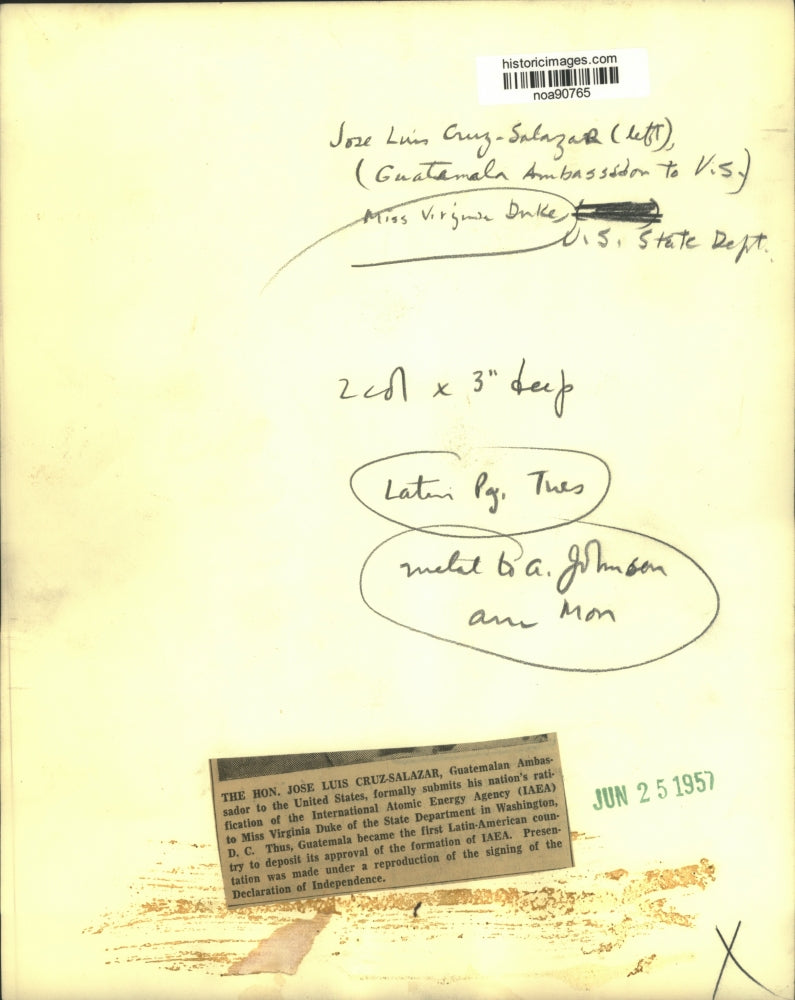 historicimages.com
noa90765
Jose Luis Cruz-Salazar (left),
(Guatamala Ambassador to U.S.)
Miss Virginia Duke,
U.S. State Dept.
2 col x 3" deep
Latin Pg. Tues
metal to A. Johnson
am Mon
THE HON. JOSE LUIS CRUZ-SALAZAR, Guatemalan Ambas-
sador to the United States, formally submits his nation's rati-
fication of the International Atomic Energy Agency (IAEA)
to Miss Virginia Duke of the State Department in Washington,
D. C. Thus, Guatemala became the first Latin-American coun-
try to deposit its approval of the formation of IAEA. Presen-
tation was made under a reproduction of the signing of the
Declaration of Independence.
JUN 25 1957
X